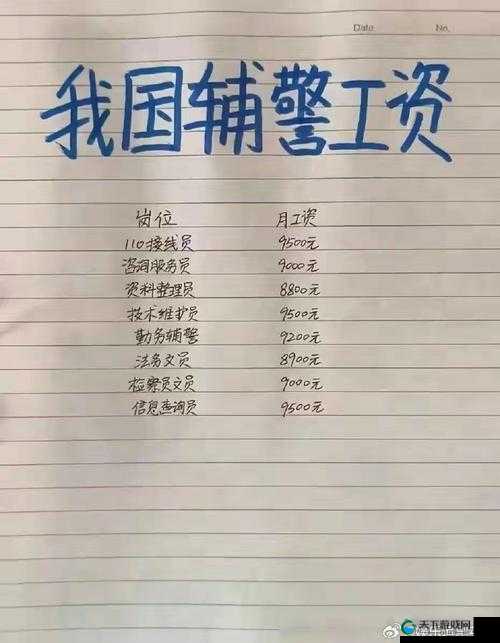 Date No.
我国辅警工资
岗位 月工资
110接线员 9500元
咨询服务员 9000元
资料整理员 8800元
技术维护员 9500元
勤务辅警 9200元
法务文员 8900元
检察员文员 9000元
信息查询员 9500元
天下游戏网